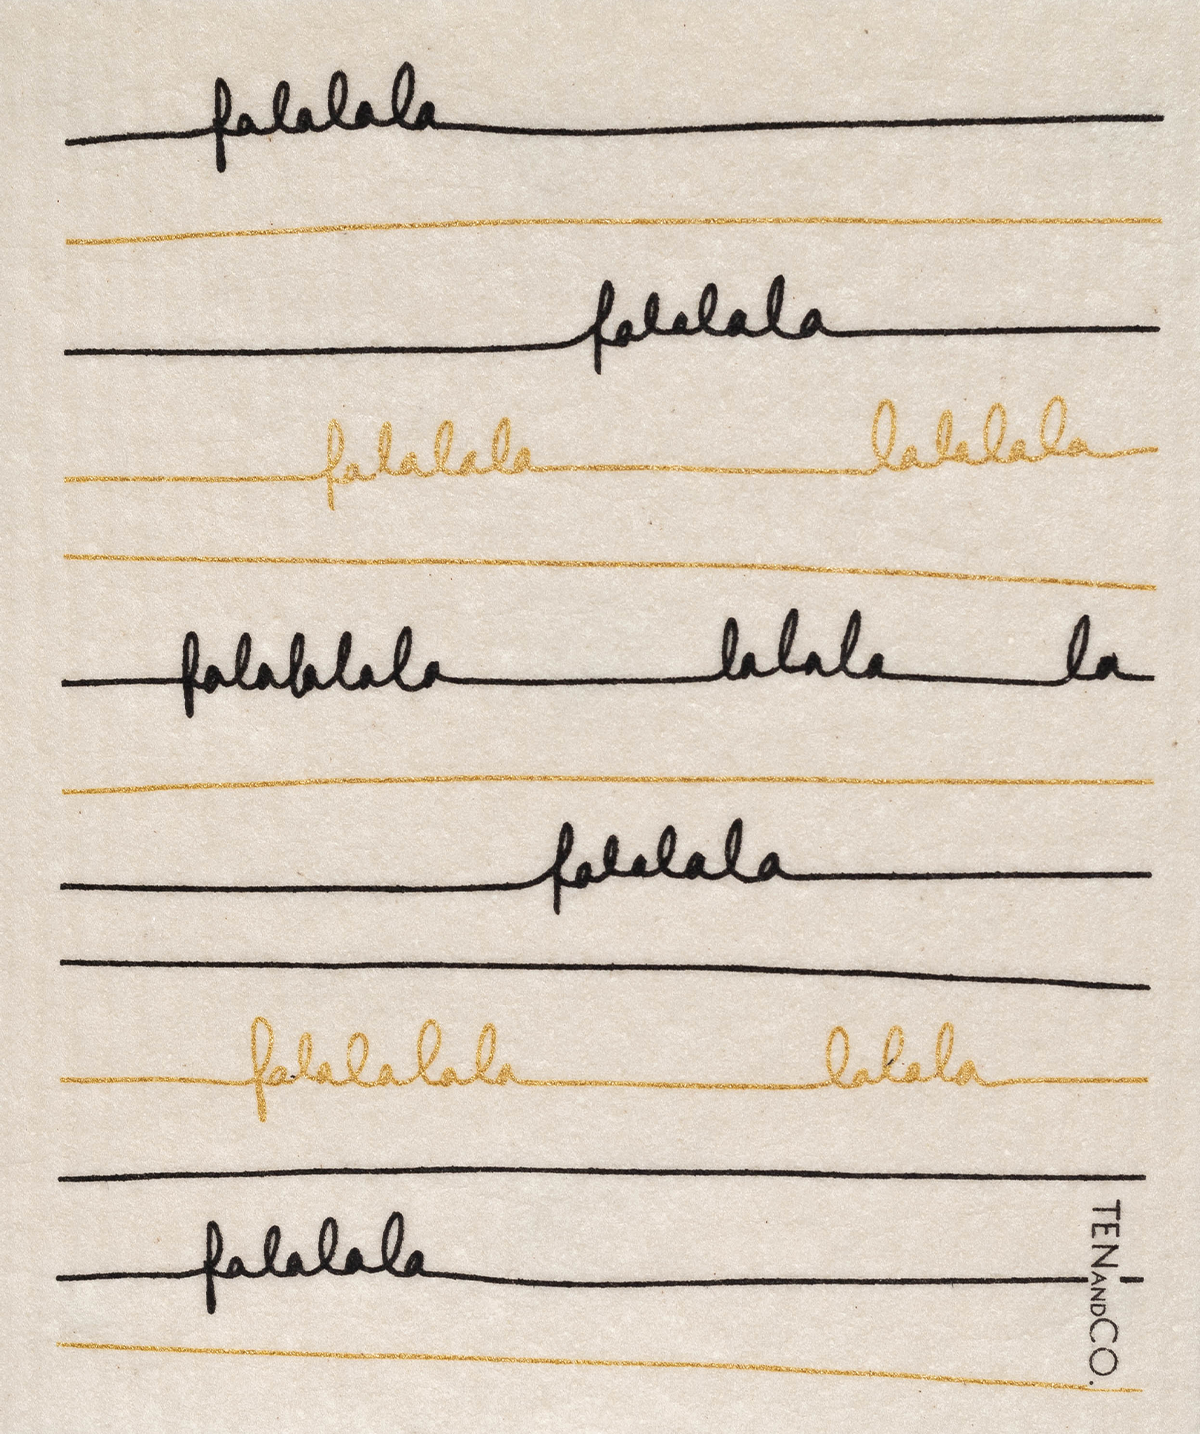 falalala
falalala
falalala lalalala
falalalala lalala la
falalala
falalalala lalala
falalala
TEN AND CO.